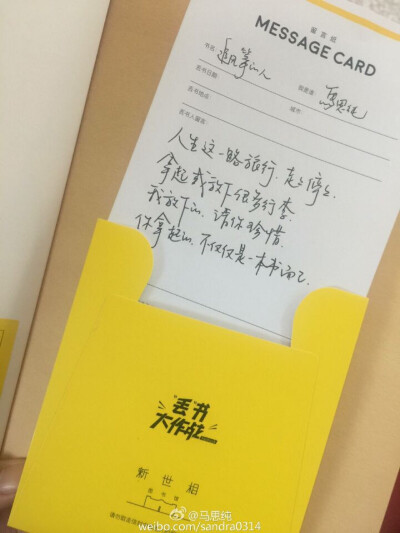 留言纸
MESSAGE CARD
书名: 追风筝的人
丢书日期: 丢书者: 马思纯
丢书地点: 城市:
丢书人留言:
人生这一路旅行,走走停停.
拿起或放下很多行李.
我放下的,请你珍惜.
你拿起的,不仅仅是一本书而已.
"丢"书
大作战
新世相
图书馆
@马思纯
weibo.com/sandra0314